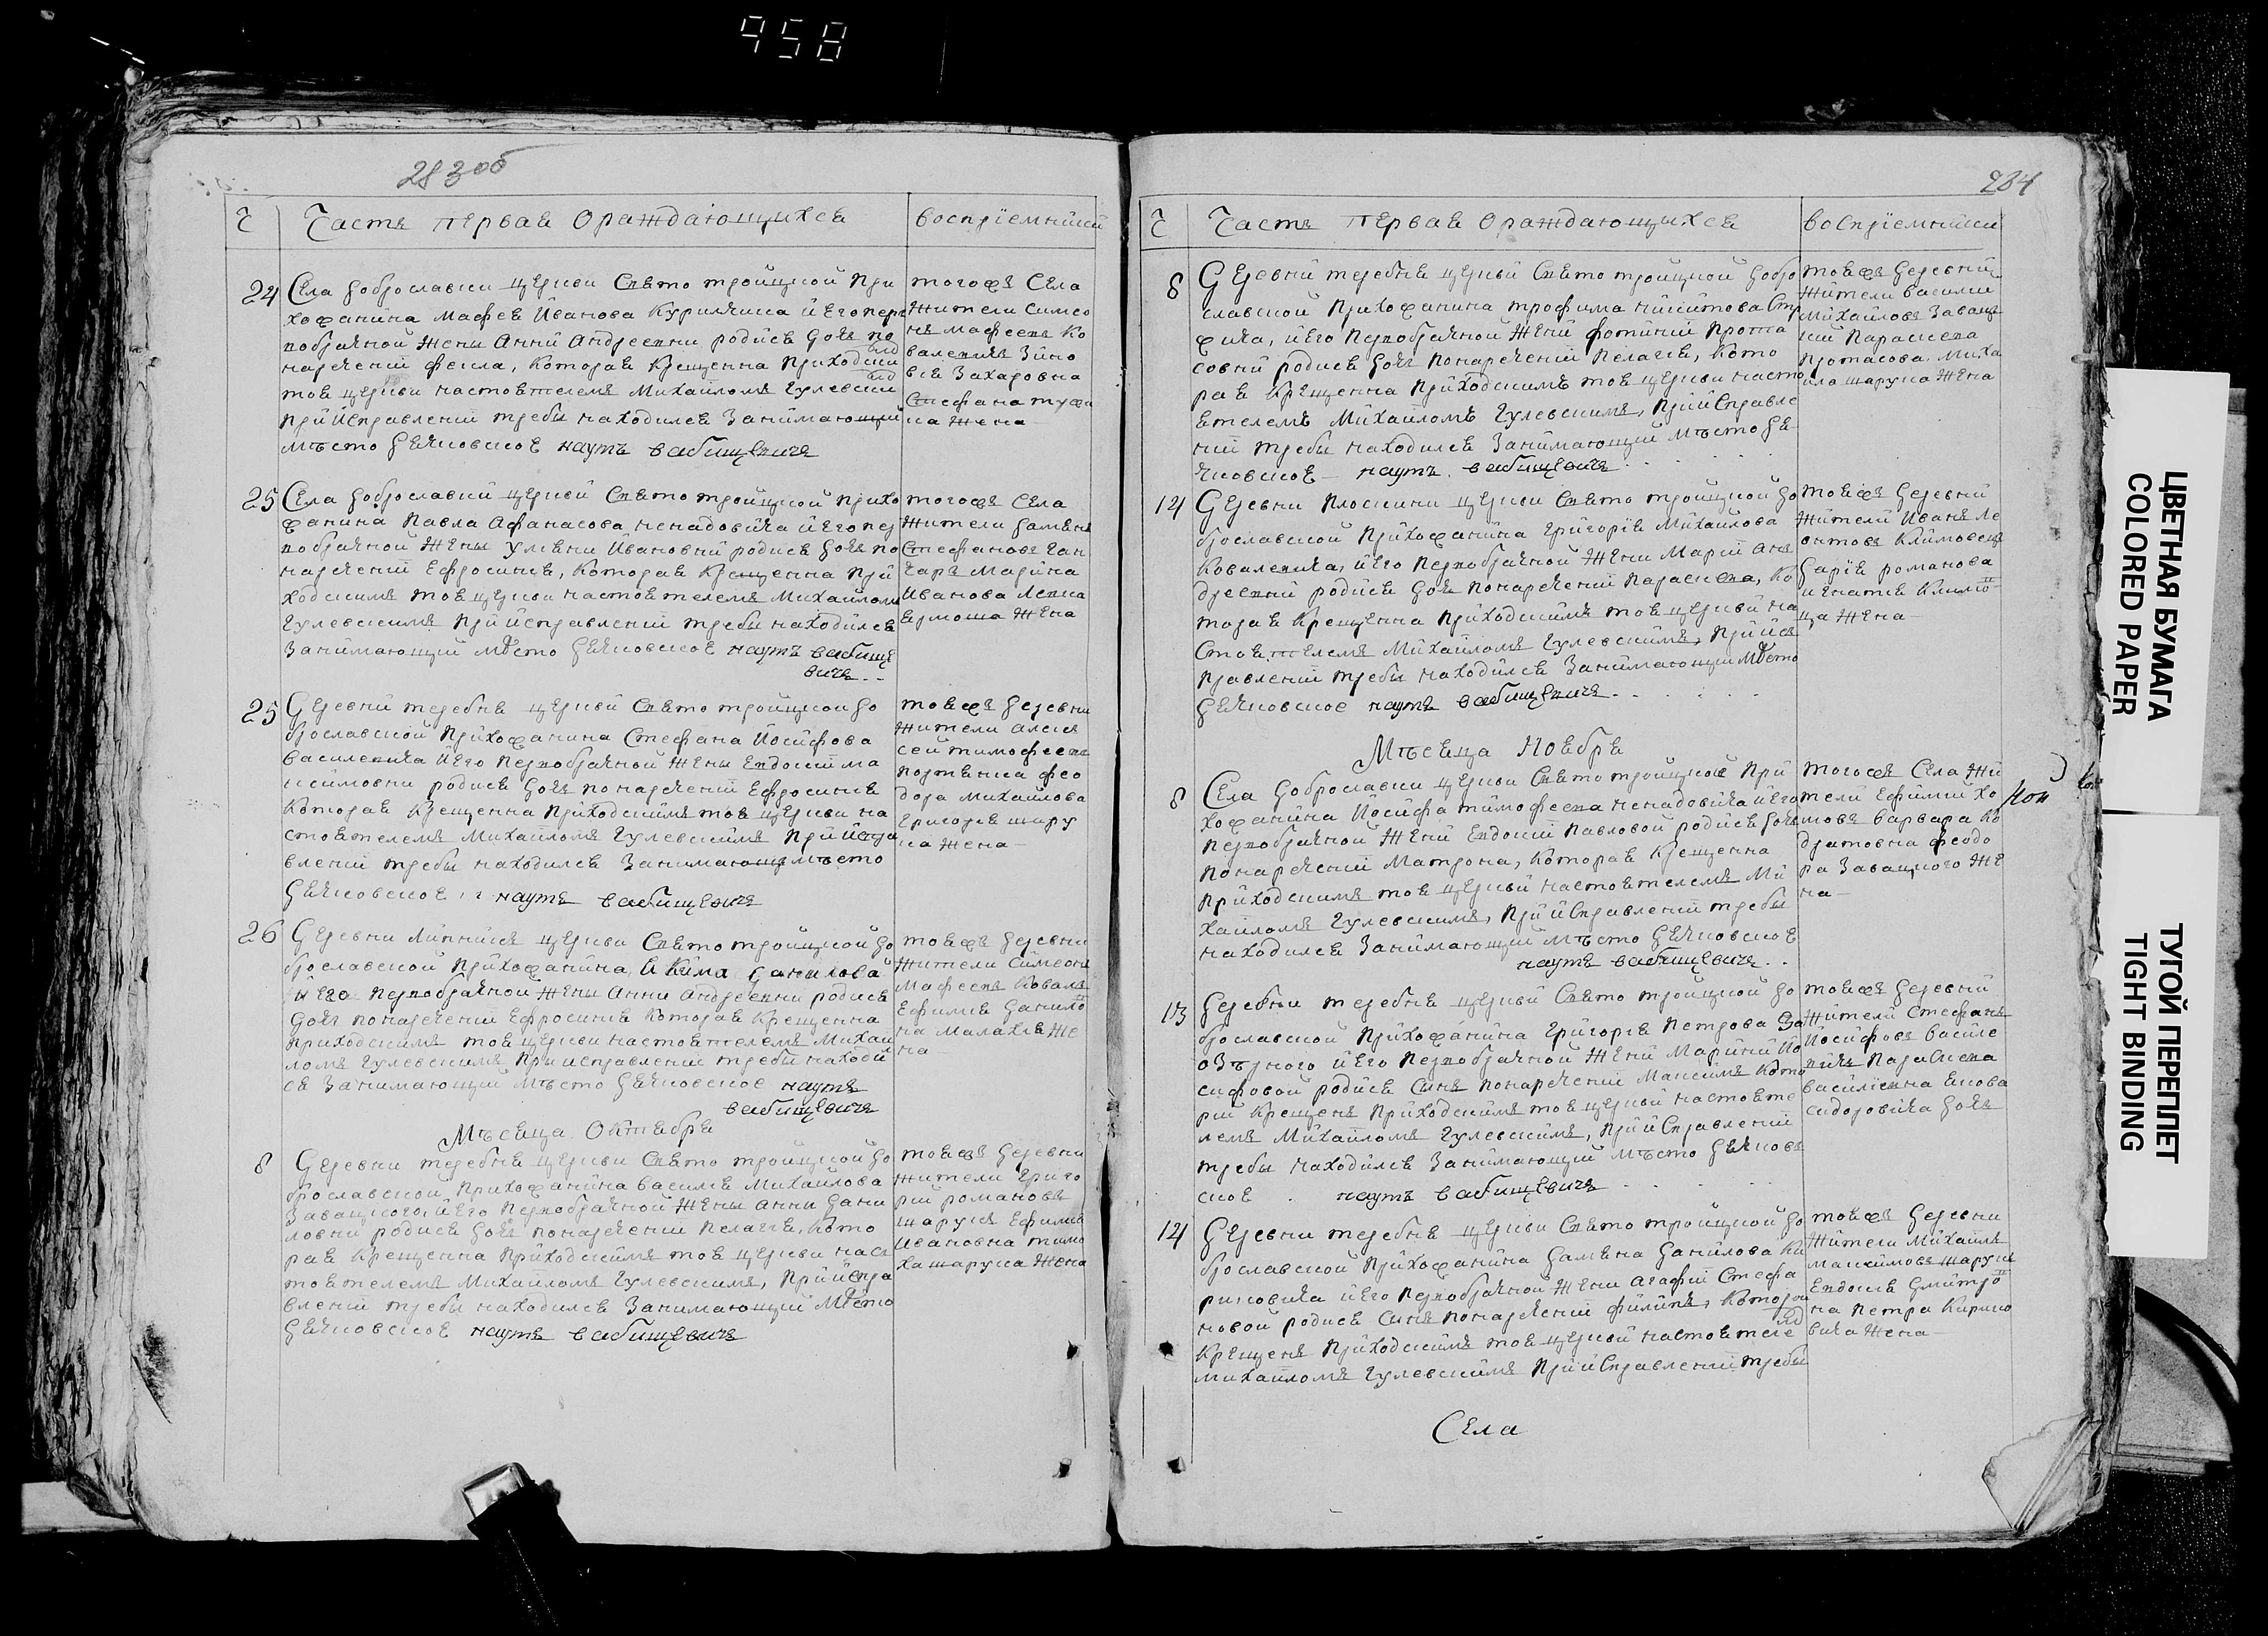 958
283 об
Ч Часть первая о раждающихся воспрiемники
24 Села Доброславки церкви Свято троицкой при
хожанина Мафея Иванова Куриляка и его перв
побрачной жены Анни Андреевни родися дочь по
наречении Фекла, которая крещенна приходским
тоя церкви настоятелемъ Михаиломъ Гулевским
при исправлении требы находился занимающий
мѣсто дячковское наумъ вабищевичъ
тогожъ села
жители Симео
нъ Мафеевъ Ко
валевичъ Зино
вия Захаровна
Стефана
жена
25 Села Доброславки церкви Свято троицкой прихо
жанина Павла Афанасова Ненадовича и его пер
вобрачной жены Улияни Ивановни родися дочь по
наречении Ефросиния, которая крещенна при
ходскимъ тоя церкви настоятелемъ Михаиломъ
Гулевскимъ при исправлении требы находился
занимающий мѣсто дячковское наумъ вабище
вичъ
тогожъ села
жители Дамянъ
Стефановъ Ган
чаръ Марина
Иванова
Ермоша жена
25 Деревни теребня церкви Свято троицкой до
брославской прихожанина Стефана Иосифова
Василевича и его первобрачной жены Евдокии Ма
ксимовни родися дочь по наречении Ефросиния
которая крещенна приходскимъ тоя церкви на
стоятелемъ Михаиломъ Гулевскимъ при испра
влении требы находился занимающ мѣсто
дячковское наумъ вабищевичъ
тояжъ деревни
жители Алекс
сей Тимофеевъ
Фео
дора Михайлова
Григория Шару
ка жена
26 Деревни Липникъ церкви Свято троицкой до
брославской прихожанина Якима Данилова
и его первобрачной жены Анни Андреевни родися
дочь по наречении Ефросиния которая крещенна
приходскимъ тоя церкви настоятелемъ Михаи
ломъ Гулевскимъ при исправлении требы находил
ся занимающий мѣсто дячковское наумъ
вабищевичъ
тояжъ деревни
жители Симеонъ
Мафеевъ Коваль
Ефимия Данило
на Малахия же
на
Мѣсяца Октября
8 Деревни теребня церкви Свято троицкой до
брославской прихожанина Василя Михайлова
Завацкого, и его первобрачной жены Анни Дани
ловни родися дочь по наречении Пелагея, кото
рая крещенна приходскимъ тоя церкви нас
тоятелемъ Михаиломъ Гулевскимъ, при испра
влении требы находился занимающий мѣсто
дячковское наумъ вабищевичъ
тояжъ деревни
жители Григо
рий Романовъ
Шарукъ Ефимия
Ивановна Тимо
ха Шарука жена
284
Ч Часть первая о раждающихся воспрiемники
8 Деревни теребня церкви Свято троицкой добро
славской прихожанина Трофима Никитова Стр
жика, и его первобрачной жени Фотинии Прота
совни родися дочь по наречении Пелагея, кото
рая крещенна приходскимъ тоя церкви насто
ятелемъ Михаиломъ Гулевскимъ, при исправле
нии требы находился занимающий мѣсто дя
чковское наумъ вабищевичъ
тояжъ деревни
жители Василий
Михайловъ Завац
кий Параскева
Протасова Миха
ила Шарука жена
14 Деревни Плоскини церкви Свято троицкой до
брославской прихожанина Григория Михайлова
Ковалевича, и его первобрачной жени Марии Ан
дреевни родися дочь по наречении Параскева, ко
торая крещенна приходскимъ тоя церкви на
стоятелемъ Михаиломъ Гулевскимъ, при ис
правлении требы находился занимающий мѣсто
дячковское наумъ вабищевичъ
тояжъ деревни
жители Иванъ Ле
онтовъ Климовец
Дария Романова
Игнатия Климо
ца жена
Мѣсяца Ноября
8 Села Доброславки церкви Свято троицкой при
хожанина Иосифа Тимофеева Ненадовича и его
первобрачной жени Евдокии Павловой родися дочь
по наречении Матрона, которая крещенна
приходскимъ тоя церкви настоятелемъ Ми
хаиломъ Гулевскимъ, при исправлении требы
находился занимающий мѣсто дячковское
наумъ вабищевичъ
тогожъ села жи
тели Ефимий Хо
мовъ Варвара Ко
дратовна Феодо
ра Завацкого же
на
13 Деревни теребня церкви Свято троицкой до
брославской прихожанина Григория Петрова За
озѣрного и его первобрачной жени Марини Ио
сифовой родися синъ по наречении Максимъ кото
рий крещенъ приходскимъ тоя церкви настояте
лемъ Михаиломъ Гулевскимъ, при исправлении
требы находился занимающий мѣсто дячков
ское наумъ вабищевичъ
тояжъ деревни
жители Стефанъ
Иосифовъ Василе
вичъ Параскева
Василиевна Якова
Сидоровича дочь
14 Деревни теребня церкви Свято троицкой до
брославской прихожанина Дамяна Данилова Ки
риковича и его первобрачной жени Агафии Стефа
новой родися синъ по наречении Филипъ, которий
крещенъ приходскимъ тоя церкви настоятеле
Михаиломъ Гулевскимъ при исправлении требы
тояжъ деревни
жители Михаилъ
Максимовъ Шарукъ
Евдокия Дмитро
на Петра Кирико
вича жена
Села
ЦВЕТНАЯ БУМАГА
COLORED PAPER
ТУГОЙ ПЕРЕПЛЕТ
TIGHT BINDING